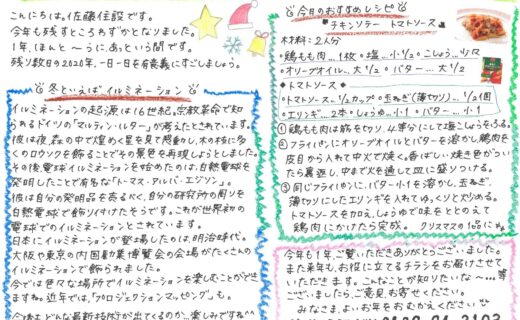 こんにちは。佐藤住設です。
今年も残すところわずかとなりました。
1年、ほんと～うに、あっという間です。
残り数日の2020年、一日一日を有義にすごしましょう。
冬といえばイルミネーション
イルミネーションの起源は16世紀。宗教革命で知
られるドイツの「マルティン・ルター」が考えたとされています。
彼は夜、森の中で煌めく星を見て感動し、木の枝に多
くのロウソクを飾ることでその景色を再現しようとしました。
その後電球イルミネーションを始めたのは、白熱電球を
発明したことで有名な「トーマス・アルバ・エジソン」。
彼は自分の発明品を売るべく、自分の研究所の周りを
白熱電球で飾り付けたそうです。これが世界初の
電球でのイルミネーションとされています。
日本にイルミネーションが登場したのは、明治時代。
大阪や東京の内国勧業博覧会の会場がたくさんの
イルミネーションで飾られました。
今では色々な場所でイルミネーションを楽しむことができ
ますね。近年では、「プロジェクションマッピング」も。
今後はどんな最新技術が出てくるのか…楽しみですね
今日のおすすめレシピ
チキンソテー トマトソース
材料：2人分
・鶏もも肉…1枚 ・塩…小1/2 ・こしょう…少々
・オリーブオイル…大1/2 ・バター…大1/2
トマトソース
・トマトソース…1/2カップ ・玉ねぎ(薄切り)…1/2個
・エリンギ…2本 ・しょうゆ…小1 ・バター…小1
①鶏もも肉は筋を切り、4等分にして塩こしょうをふる。
②フライパンにオリーブオイルとバターを溶かし鶏肉を
皮目から入れて中火で焼く。香ばしい焼き色がつい
たら裏返し、中まで火を通して皿に盛りつける。
③同じフライパンに、バター小1を溶かし、玉ねぎ、
薄切りにしたエリンギを入れてゆっくりと炒める。
トマトソースを加え、しょうゆで味をととのえて
鶏肉にかけたら完成。 クリスマスの1品にも
今年も1年、ご覧いただきありがとうございました。
また来年も、お役に立てるチラシをお届けさせて
いただきます。こんなことが知りたいな～…等
ございましたら、ご意見お寄せください。
みなさま、よいお年をおむかえください